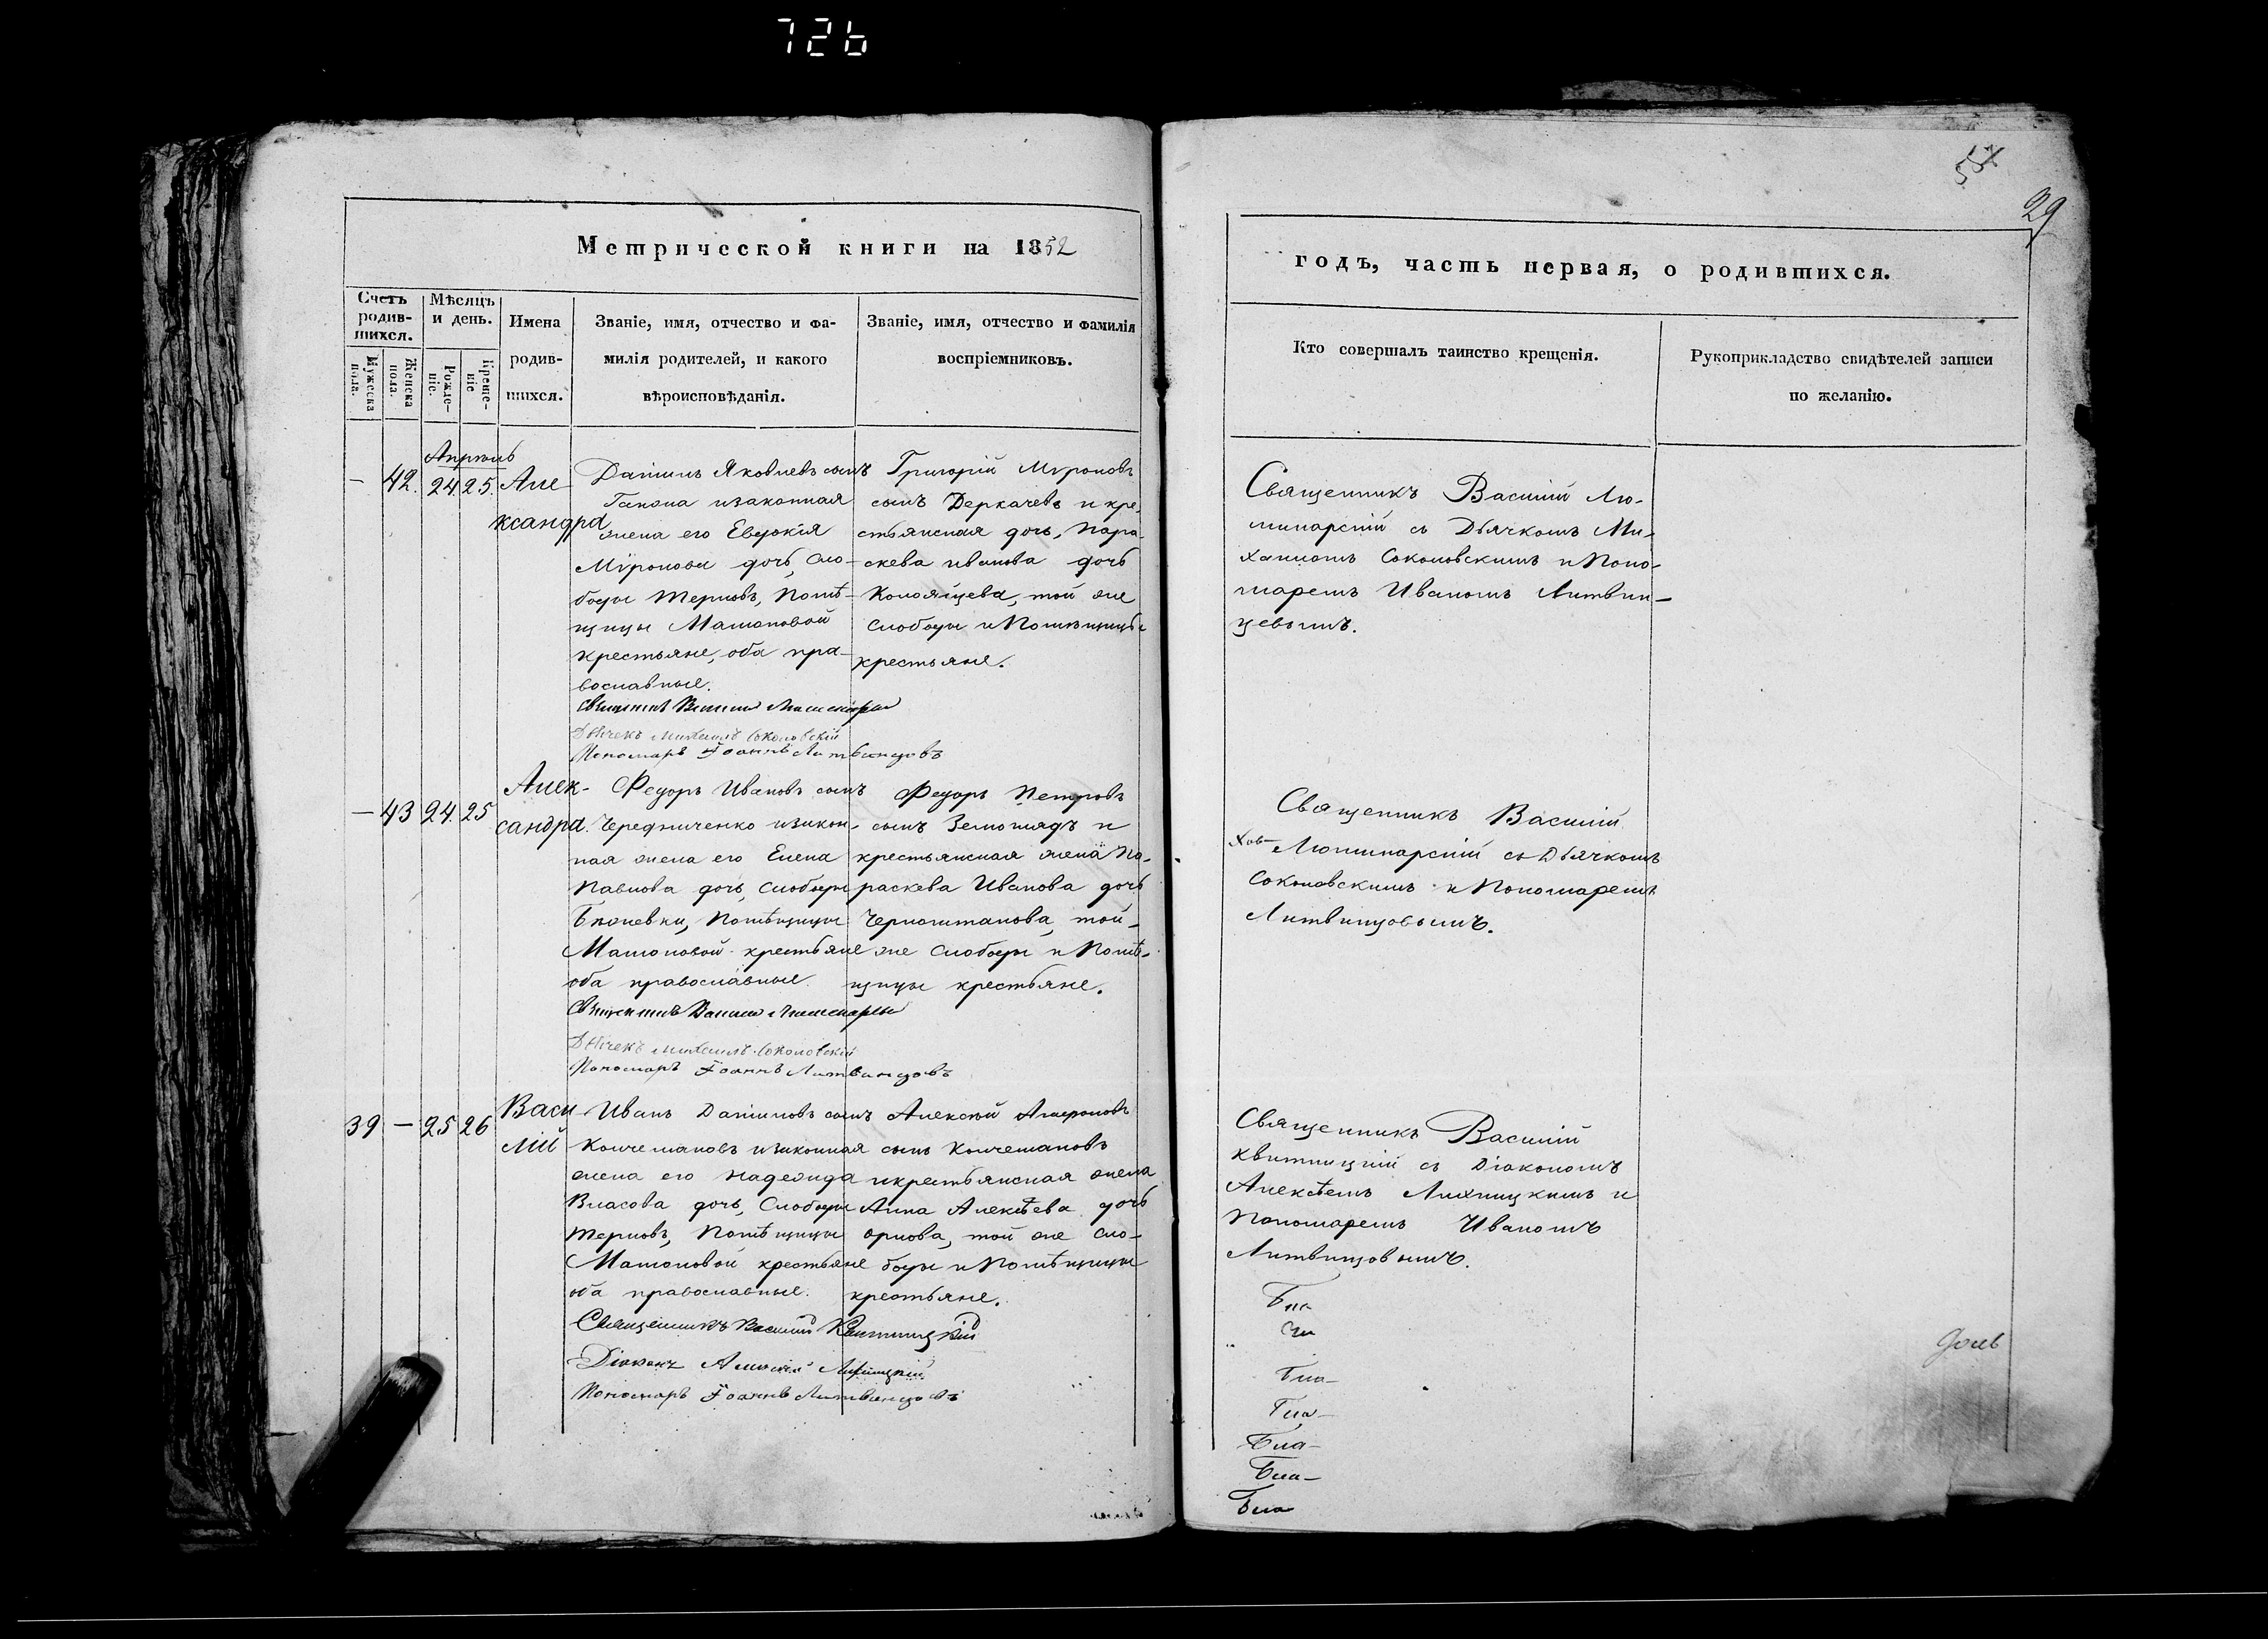 726
57
29
Метрической книги на 1852
годъ, часть первая, о родившихся.
Счетъ родив-шихся.
Мужеска пола.
Женска пола.
Мѣсяцъ и день.
Рожде-ніе.
Креще-ніе
Имена
родив-
шихся.
Званіе, имя, отчество и фа-
милія родителей, и какого
вѣроисповѣданія.
Званіе, имя, отчество и фамилія
воспріемниковъ.
Кто совершалъ таинство крещенія.
Рукоприкладство свидѣтелей записи
по желанію.
Апрель
— 42. 24. 25. Але
ксандра
Даніилъ Яковлевъ сынъ
Гапона изаконная
жена его Евдокія
Мѵронова дочь, Сло-
боды Терновъ, Помѣ-
щицы Машоновой
крестьяне, оба пра-
вославные.
Священникъ Василій
Дьячекъ Михаилъ Соколовскій
Пономарь Іоаннъ Литвинцовъ
Григорій Мѵроновъ
сынъ Деркачевъ и кре-
стьянская дочь, Пара-
скева Иванова дочь
той же
Слободы и Помѣщицы
крестьяне.
Священникъ Василій Лю-
минарскій съ Дьячкомъ Ми-
хаиломъ Соколовскимъ и Поно-
маремъ Иваномъ Литвин-
цевымъ.
— 43 24. 25 Алек-
сандра.
Федоръ Ивановъ сынъ
Чередниченко изакон-
ная жена его Елена
Павлова дочь, Слободы
Помѣщицы
Машоновой крестьяне
оба православные.
Священникъ Василій
Дьячекъ Михаилъ Соколовскій
Пономарь Іоаннъ Литвинцовъ
Федоръ Петровъ
сынъ и
крестьянская жена Па-
раскева Иванова дочь
Черноштанова, той-
же Слободы и Помѣ-
щицы крестьяне.
Священникъ Василій
Люминарскій съ Дьячкомъ
Соколовскимъ и Пономаремъ
Литвинцовымъ.
39 — 25 26 Васи
лій
Иванъ Даниловъ сынъ
изаконная
жена его Надежда
Власова дочь, Слободы
Терновъ, Помѣщицы
Машоновой крестьяне
оба православные.
Священникъ Василій Квитницкій
Діаконъ Алексѣй
Пономарь Іоаннъ Литвинцовъ
Алексѣй
сынъ
икрестьянская жена
Анна Алексѣева дочь
Орлова, той же Сло-
боды и Помѣщицы
крестьяне.
Священникъ Василій
Квитницкій съ Діакономъ
Алексѣемъ и
Пономаремъ Иваномъ
Литвинцовымъ.